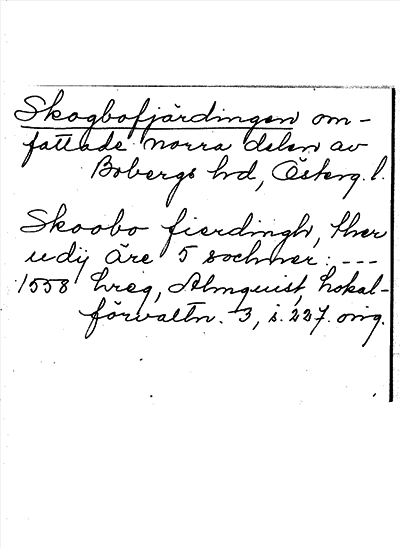 Skogbofjärdingen om-
fattade norra delen av
Bobergs hd, Österg. l.
Skoobo fierdingh, ther
udij äre 5 sochner: ---
1558 hreg, Almquist, Lokal-
förvaltn. 3, s. 227. orig.